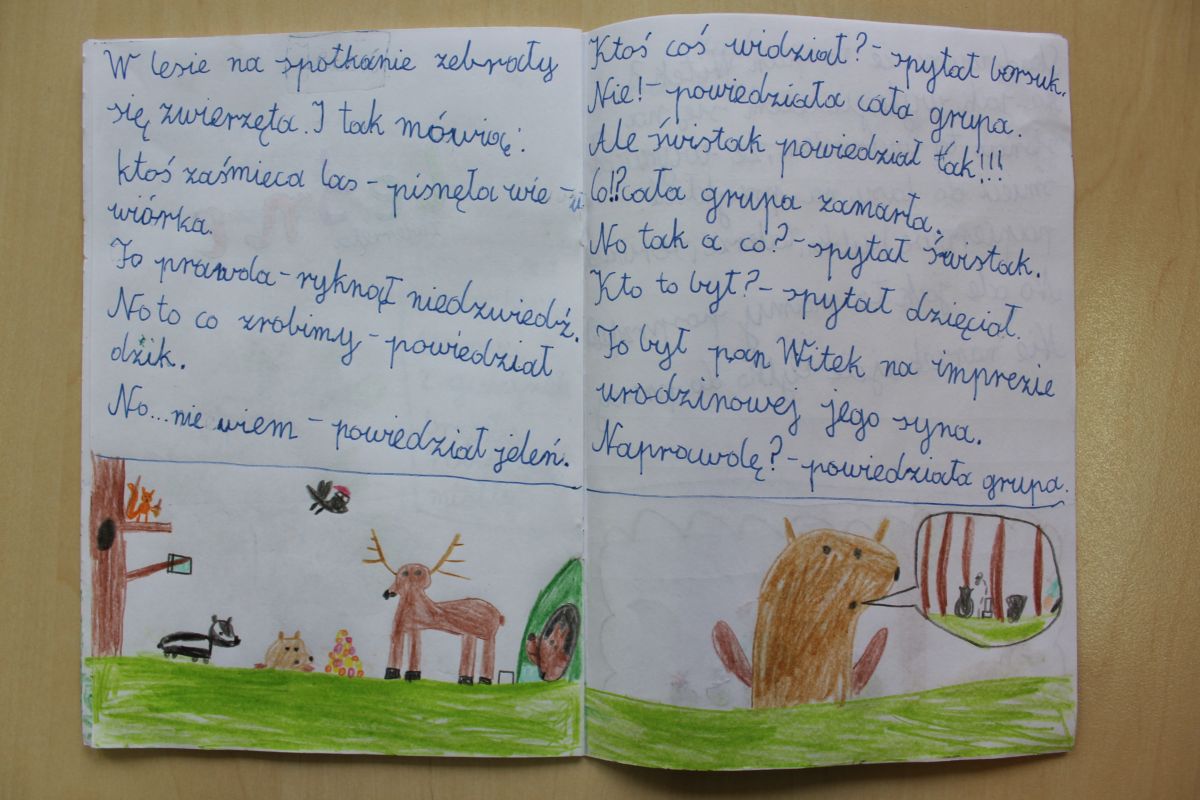 W lesie na spotkanie zebrały
się zwierzęta. I tak mówią:
ktoś zaśmieca las - pisnęła wie -
wiórka.
To prawda - ryknął niedzwiedź.
No to co zrobimy - powiedział
dzik.
No... nie wiem - powiedział jeleń.
Ktoś coś widział? - spytał borsuk.
Nie! - powiedziała cała grupa.
Ale świstak powiedział tak!!!
Co!? cała grupa zamarła.
No tak a co? - spytał świstak.
Kto to był? - spytał dzięcioł.
To był pan Witek na imprezie
urodzinowej jego syna.
Naprawdę? - powiedziała grupa.